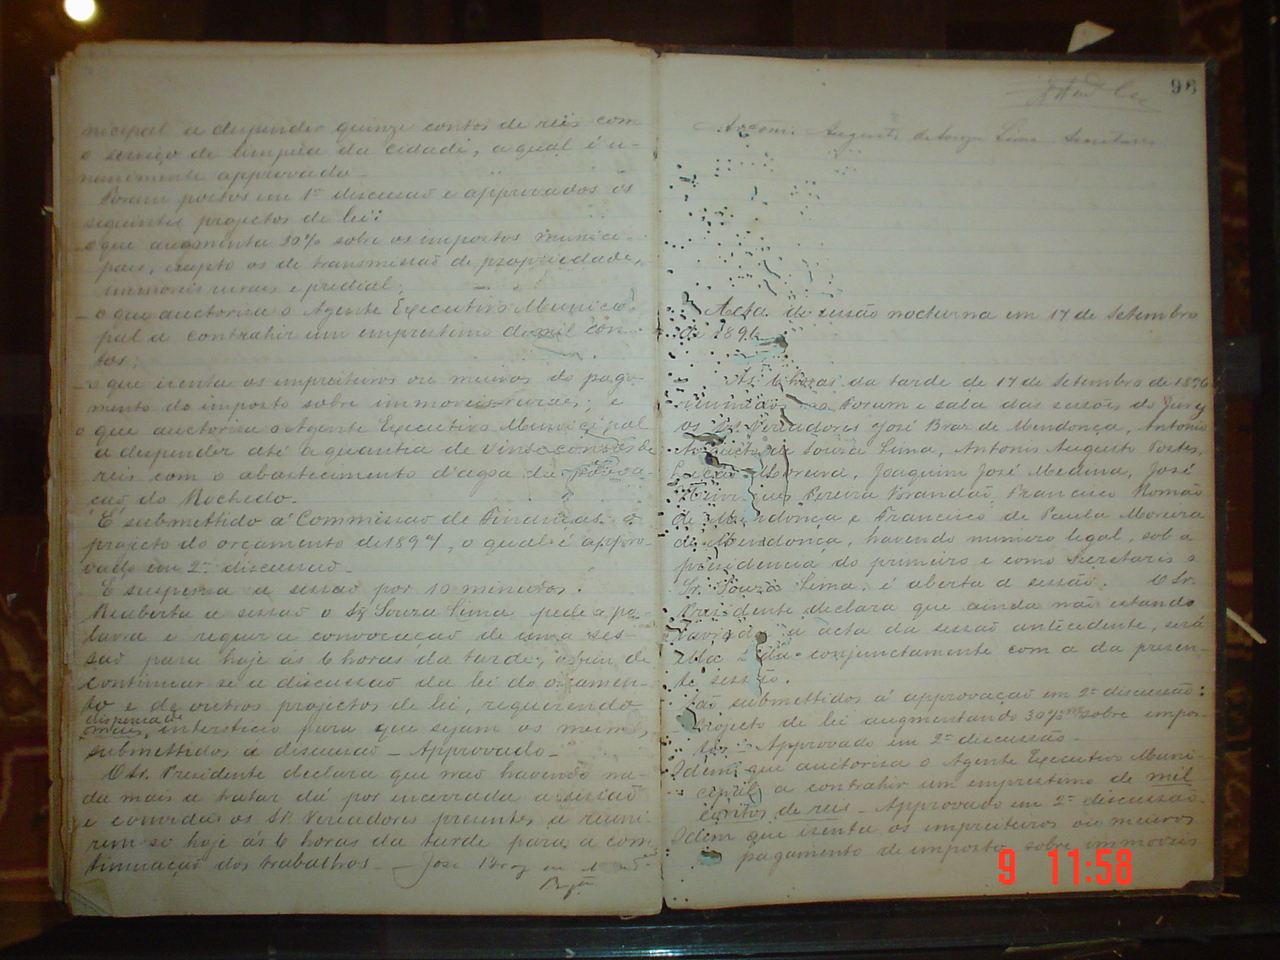 nicipal a despender quinze contos de reis com
o serviço de limpesa da cidade, a qual é u-
nanimente approvada.
Foram postos em 1ª discussão e approvados os
seguintes projectos de lei:
- o que augmenta 30% sobre os impostos munici-
paes, exepto os de transmissão de propriedade,
immoveis ruraes e predial;
- o que auctorisa o Agente Executivo Munici-
pal a contrahir um emprestimo de mil con-
tos;
- o que isenta os impreiteiros ou meeiros do paga-
mento do imposto sobre immoveis ruraes; e
o que auctorisa o Agente Executivo Municipal
a despender até a quantia de vinte contos de
reis com o abastecimento d'agoa da povoa-
ção do Rochedo.
É submettido á Commissão de Finanças o
projecto do orçamento de 1897, o qual é appro-
vado em 2ª discussão.
É suspensa a sessão por 10 minutos.
Reaberta a sessão o Sr. Souza Lima pede a pa-
lavra e requer a convocação de uma ses-
são para hoje ás 6 horas da tarde, afim de
continuar-se a discussão da lei do orçamen-
to e de outros projectos de lei, requerendo
dispensa de
intersticio para que sejam os mesmos
submettidos a discussão - Approvado -
O Sr. Presidente declara que não havendo na-
da mais a tratar dá por encerrada a sessão
e convida os Srs. Vereadores presentes a reuni-
rem-se hoje ás 6 horas da tarde para a con-
tinuação dos trabalhos - José Braz de
96
Antonio Augusto de Souza Lima Secretario
Acta da sessão nocturna em 17 de Setembro
de 1896
As 6 horas da tarde de 17 de Setembro de 1896
reunidos no Forum e sala das sessões do Jury
os Srs. Vereadores José Braz de Mendonça, Antonio
Augusto de Souza Lima, Antonio Augusto Fortes,
Moreira, Joaquim José Medina, José
Henriques Pereira Brandão, Francisco Romão
de Mendonça e Francisco de Paula Moreira
de Mendonça, havendo numero legal, sob a
presidencia do primeiro e como Secretario o
Sr. Souza Lima, é aberta a sessão. O Sr.
Presidente declara que ainda não estando
lavrada a acta da sessão antecedente, será
ella lida conjunctamente com a da presen-
te sessão.
São submettidos á approvação em 2ª discussão:
Projecto de lei augmentando 30% sobre impos-
tos - Approvado em 2ª discussão -
Idem que auctorisa o Agente Executivo Muni-
cipal a contrahir um emprestimo de mil
contos de reis - Approvado em 2ª discussão -
Idem que isenta os impreiteiros ou meeiros
pagamento de imposto sobre immoveis
9 11:58